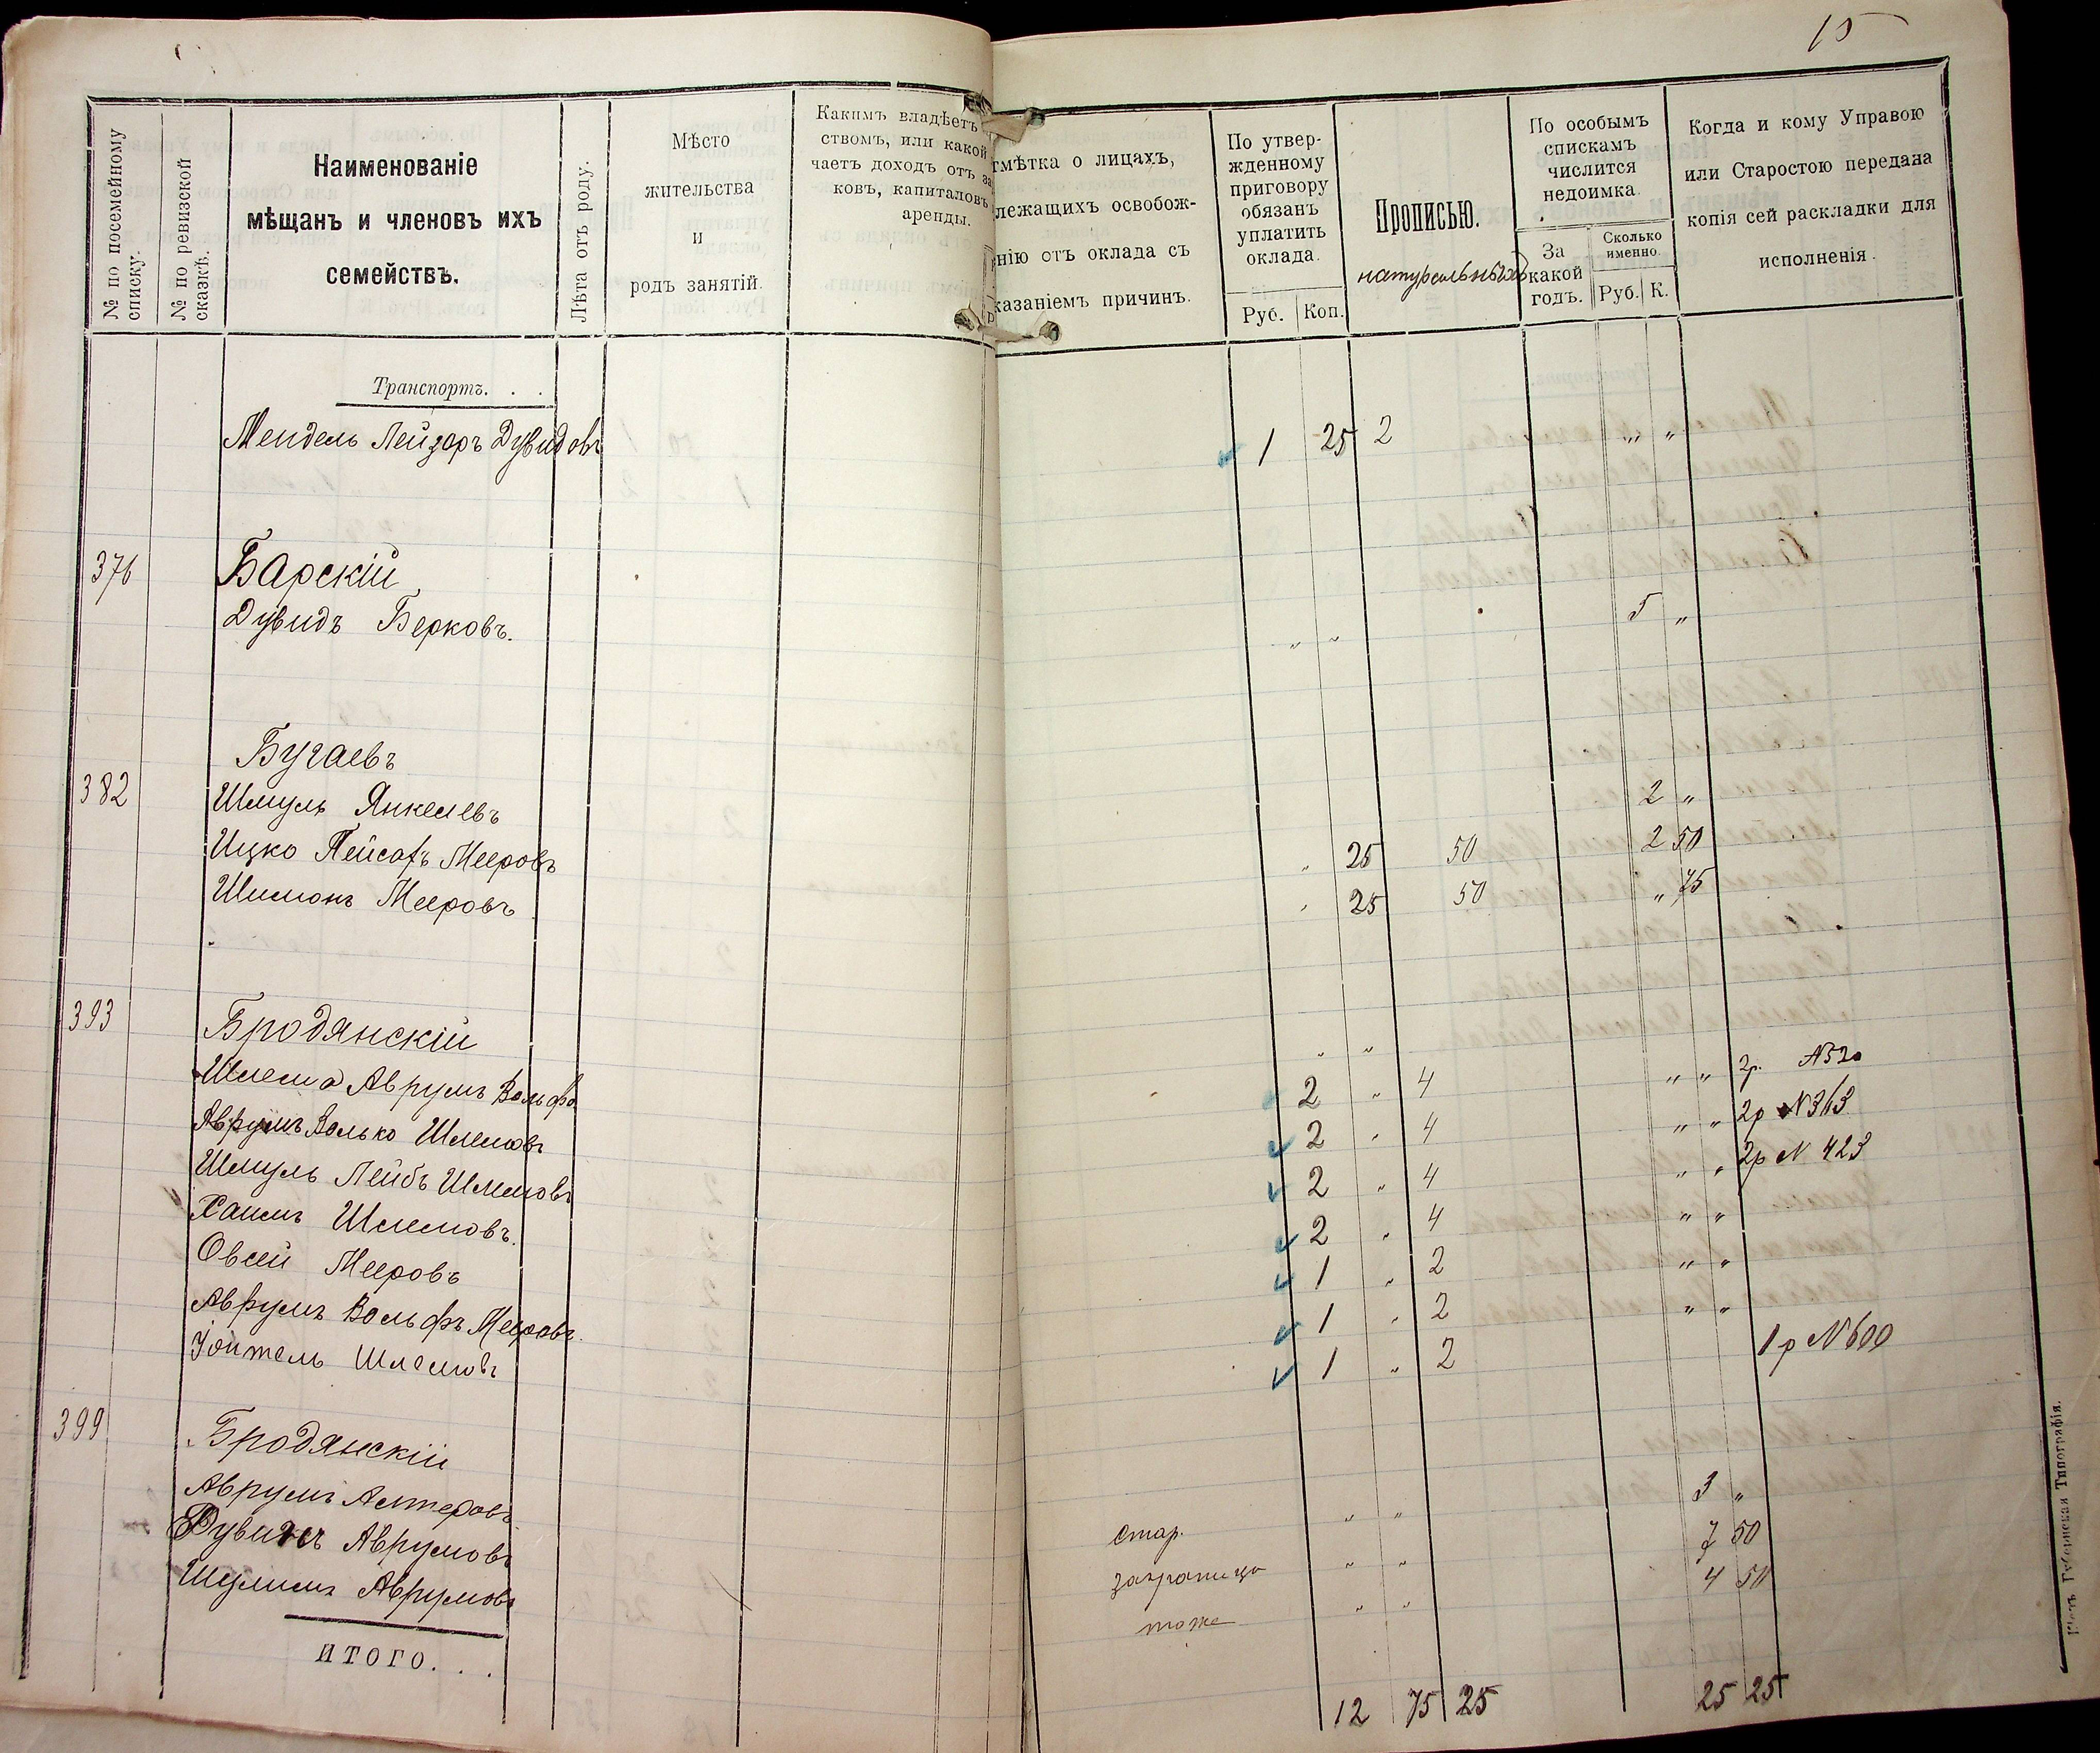 15
№ по посемейному списку.
№ по ревизской сказкѣ.
Наименованіе
мѣщанъ и членовъ ихъ
семействъ.
Лѣта отъ роду.
Мѣсто
жительства
и
родъ занятій.
Какимъ владѣетъ
ствомъ, или какой
чаетъ доходъ отъ за
ковъ, капиталовъ
аренды.
тмѣтка о лицахъ,
лежащихъ освобож-
нію отъ оклада съ
казаніемъ причинъ.
По утвер-
жденному
приговору
обязанъ
уплатить
оклада.
Руб. Коп.
Прописью.
натуральныхъ
По особымъ
спискамъ
числится
недоимка.
За
какой
годъ.
Сколько
именно.
Руб. К.
Когда и кому Управою
или Старостою передана
копія сей раскладки для
исполненія.
Транспортъ. . .
Мендель Лейзоръ Дувидовъ 1 25 2 „ „
376 Барскій
Дувидъ Берковъ. „ „ 5 „
Бугаевъ
382 Шмуль Янкелевъ 2 „
Ицко Пейсахъ Мееровъ „ 25 50 2 50
Шимонъ Мееровъ „ 25 50 „ 75
393 Бродянскій „ „
Шлема Аврумъ Вольфо 2 „ 4 „ „ 2р. №520
Аврумъ Волько Шлемовъ 2 „ 4 „ „ 2р №363
Шмуль Лейбъ Шлемовъ 2 „ 4 „ „ 2р № 423
Хаимъ Шлемовъ. 2 „ 4 „ „
Овсей Мееровъ 1 „ 2 „ „
Аврумъ Вольфъ Мееровъ. 1 „ 2 „ „
Іойтель Шлемовъ 1 „ 2 1р №600
399 Бродянскій
Аврумъ Алтеровъ стар. „ „ 3 „
Рувинъ Аврумовъ заграницу „ „ 7 50
Шулимъ Аврумовъ тоже „ „ 4 50
ИТОГО. . . 12 75 25 25 25
Кіевъ. Губернская Типографія.